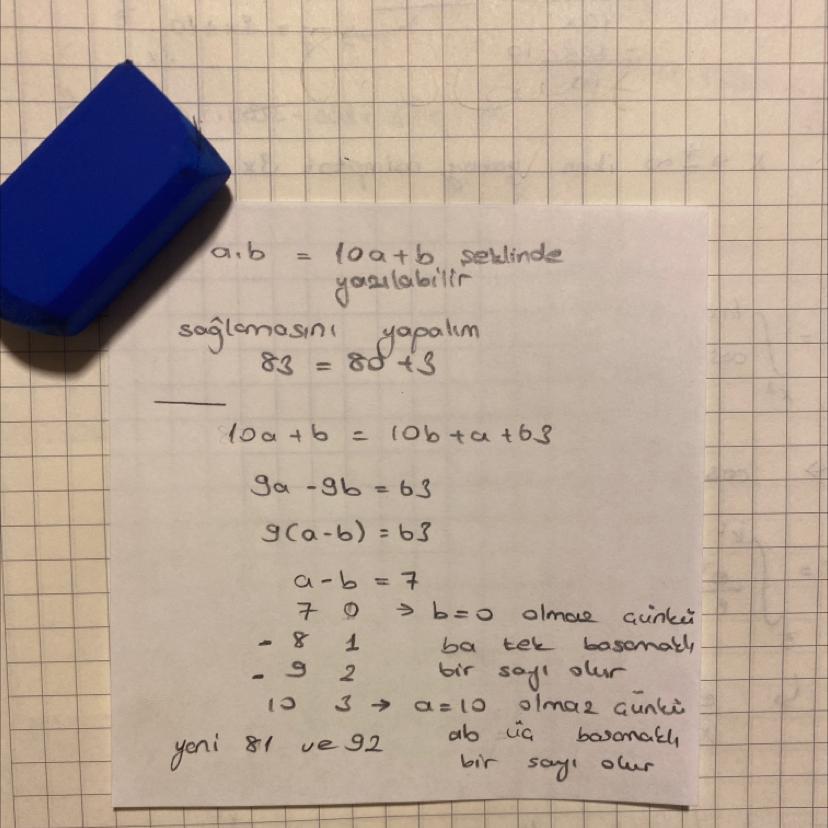 a.b = 10a+b şeklinde
yazılabilir
sağlamasını yapalım
83 = 80 +3
10a + b = 10b + a + 63
9a - 9b = 63
9(a-b) = 63
a - b = 7
7 0 → b=0 olmaz çünkü
- 8 1 ba tek basamaklı
- 9 2 bir sayı olur
10 3 → a=10 olmaz çünkü
yeni 81 ve 92 ab üç basamaklı
bir sayı olur